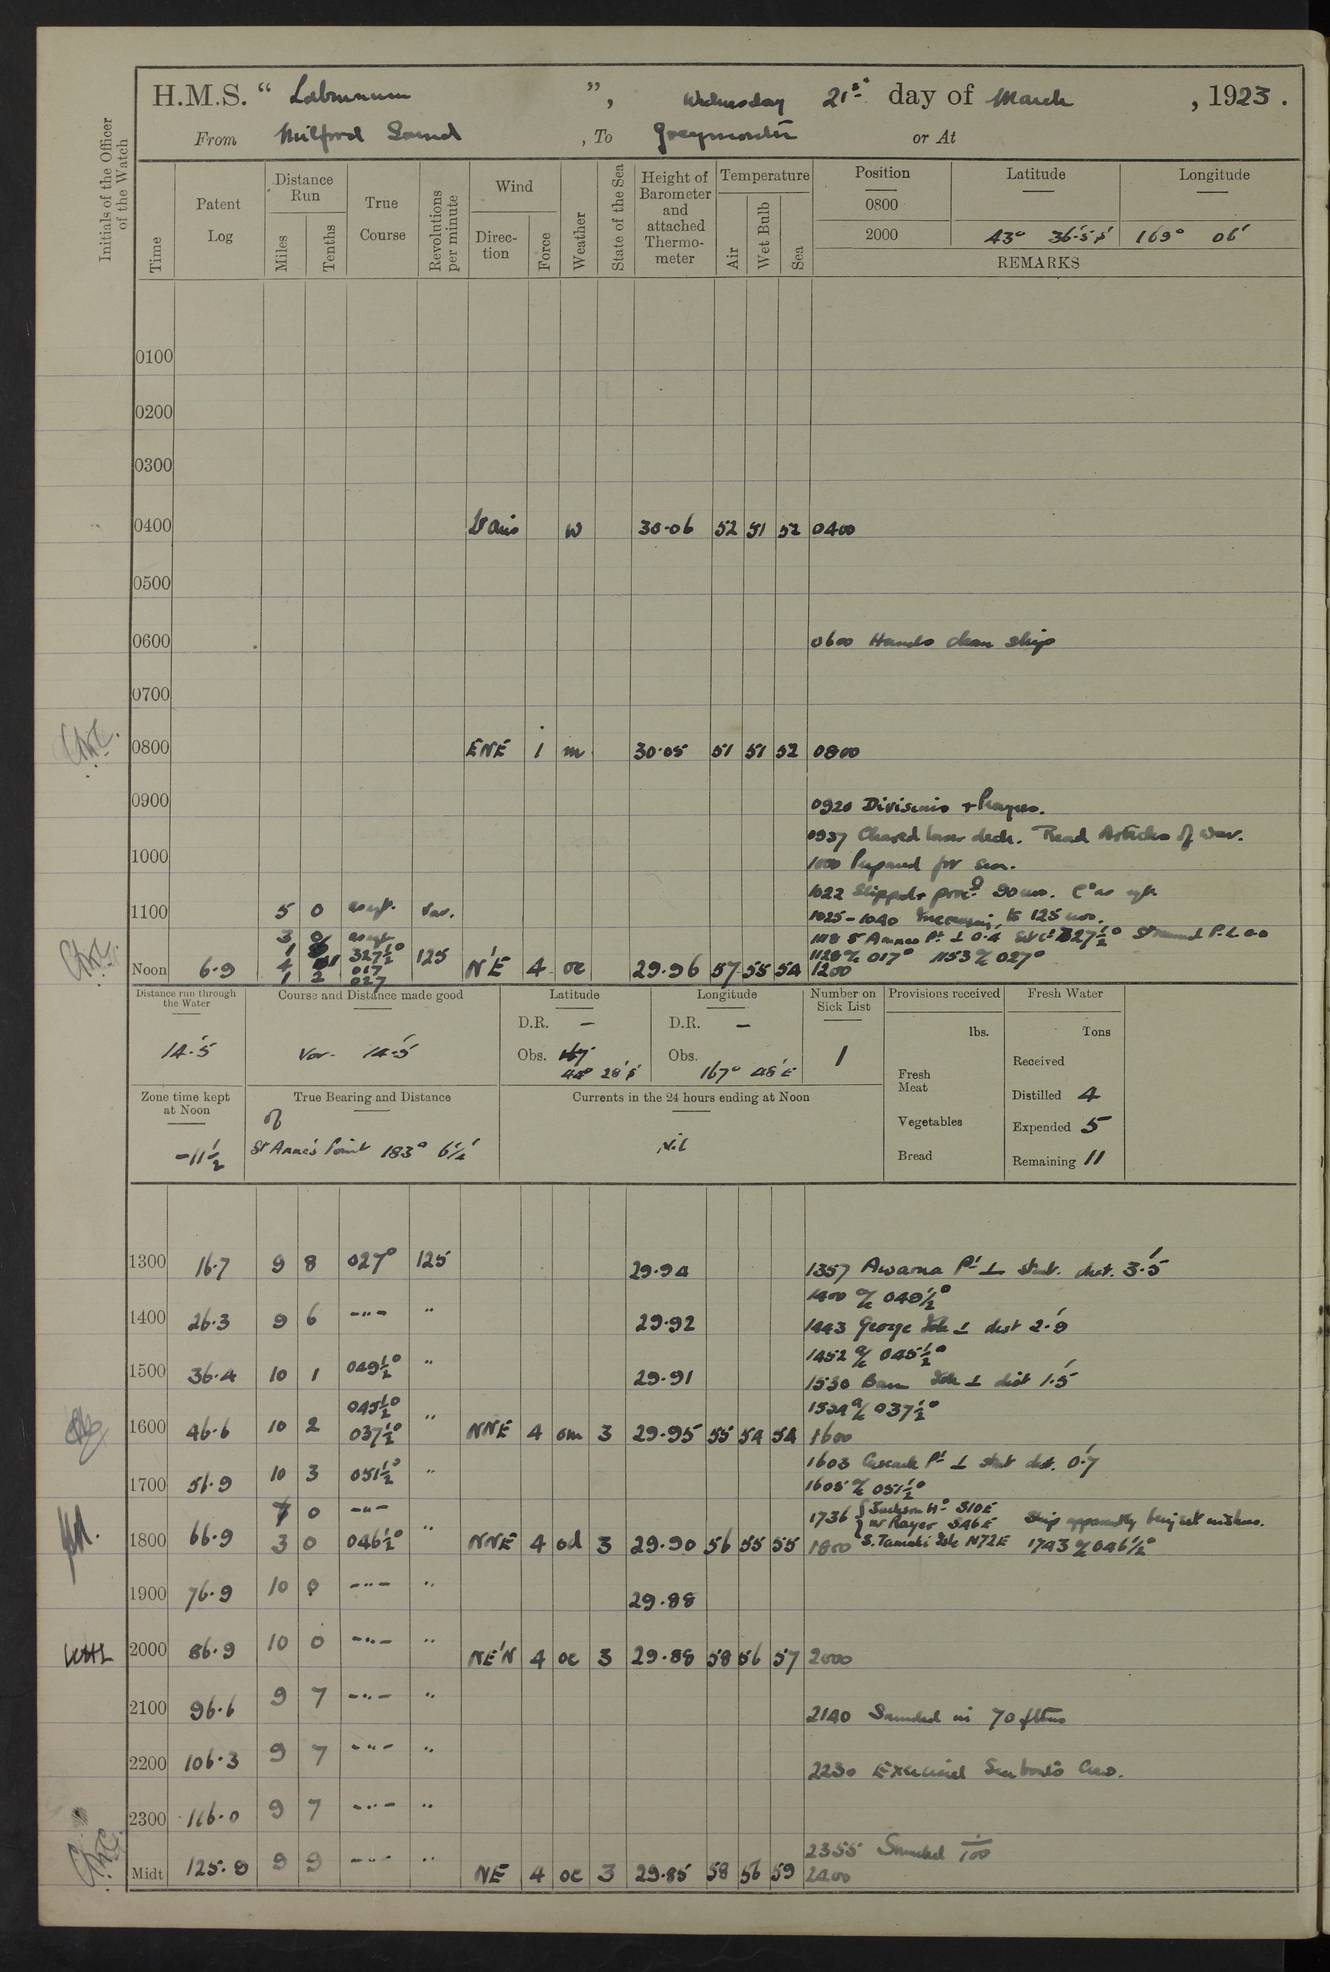 H.M.S. “ Laburnum ”, Wednesday 21st day of March , 1923 .
From Milford Sound , To Greymouth or At
Initials of the Officer of the Watch
Time
Patent Log
Distance Run
Miles
Tenths
True Course
Revolutions per minute
Wind
Direction
Force
Weather
State of the Sea
Height of Barometer and attached Thermometer
Temperature
Air
Wet Bulb
Sea
Position Latitude Longitude
0800
2000 43° 36'.5 S 169° 06'
REMARKS
0100
0200
0300
0400 w 30.06 52 51 52 0400
0500
0600 0600 Hands clean ship
0700
0800 ENE 1 m 30.05 51 51 52 0800
0900 0920 Divisions + Prayers.
0937 Cleared lower deck. Read Articles of War.
1000 1000 Prepared for sea.
1022 Slipped + procd 90 revs. Co as reqt.
1100 5 0 as reqt. Var. 1025-1040 Increasing to 125 revs.
3 0 as reqt 1118 St Annes Pt ⊥ 0.4 Set Co 327½°
1 327½° 125 1128 a/c 017° 1153 a/c 027°
4 017
Noon 6.9 1 2 027 N'E 4 oc 29.96 57 55 54 1200
Distance run through the Water
14.5
Course and Distance made good
Var. 14.5
Latitude
D.R. —
Obs. 44° 28' S
Longitude
D.R. —
Obs. 167° 48' E
Number on Sick List
1
Provisions received
lbs.
Fresh Meat
Vegetables
Bread
Fresh Water
Tons
Received
Distilled 4
Expended 5
Remaining 11
Zone time kept at Noon
-11½
True Bearing and Distance
of
St Anne's Point 183° 6¼'
Currents in the 24 hours ending at Noon
Nil
1300 16.7 9 8 027° 125 29.94 1357 Awarua Pt ⊥ stbd. dist. 3.5'
1400 a/c 049½°
1400 26.3 9 6 -"- " 29.92 1443 George Isle ⊥ dist 2.8'
1452 a/c 045½°
1500 36.4 10 1 049½° " 29.91 1530 Barn Isle ⊥ dist 1.5'
045½° 1534 a/c 037½°
1600 46.6 10 2 037½° " NNE 4 om 3 29.95 55 54 54 1600
1603 Cascade Pt ⊥ stbd dist. 0.7'
1700 56.9 10 3 051½° " 1605 a/c 051½°
7 0 -"- 1736 { Jackson Hd S10E Ship apparently being set inshore.
1800 66.9 3 0 046½° " NNE 4 od 3 29.90 56 55 55 1800 1743 a/c 046½°
1900 76.9 10 0 -"- " 29.88
2000 86.9 10 0 -"- " NE'N 4 oc 3 29.88 58 56 57 2000
2100 96.6 9 7 -"- " 2140 Sounded in 70 fthms
2200 106.3 9 7 -"- " 2230 Exercised Sea boats Crew.
2300 116.0 9 7 -"- "
2355 Sounded 100
Midt 125.9 9 9 -"- " NE 4 oc 3 29.85 58 56 59 2400